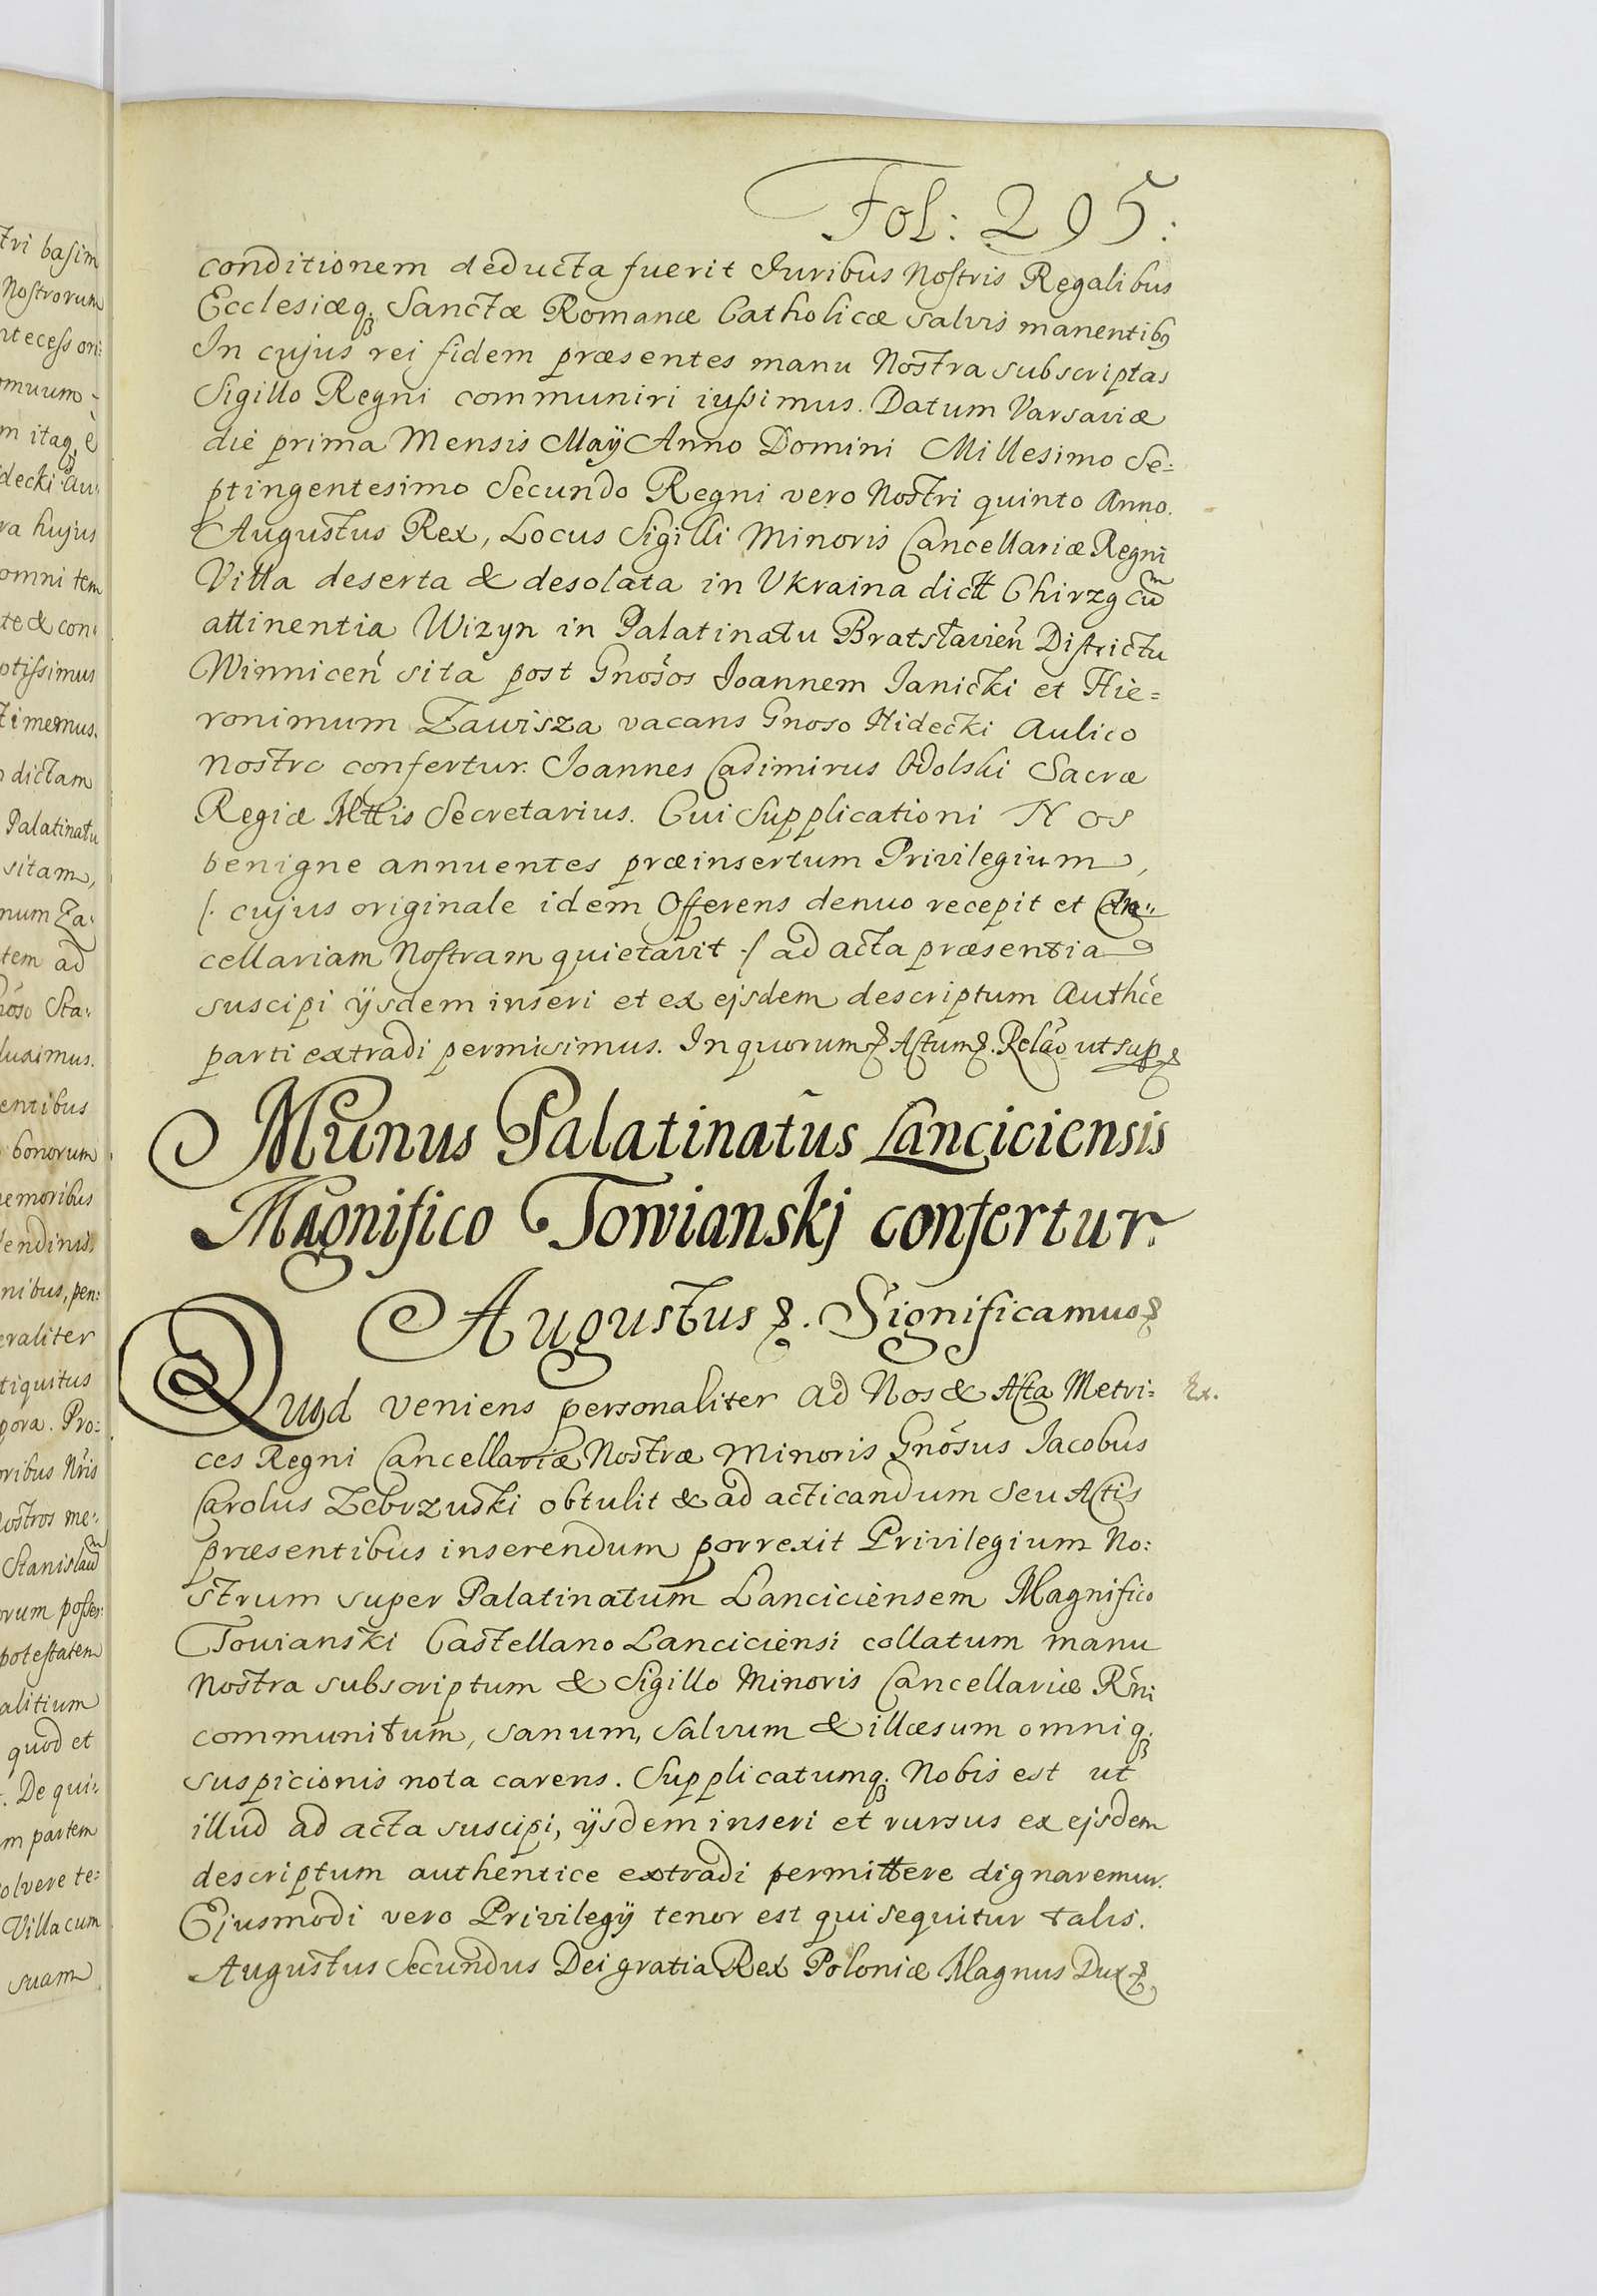 Fol: 295:
conditionem deducta fuerit Iuribus Nostris Regalibus
Ecclesiæq; Sanctæ Romanæ Catholicæ salvis manentibq
In cujus rei fidem præsentes manu Nostra subscriptas
Sigillo Regni communiri iussimus. Datum Varsaviæ
die prima Mensis Maÿ Anno Domini Millesimo Se:
ptingentesimo Secundo Regni vero Nostri quinto Anno.
Augustus Rex, Locus Sigilli Minoris Cancellariæ Regni
Villa deserta & desolata in Vkraina dictt Chirzg cum
attinentia Wizyn in Palatinatu Bratslavien Districtu
Winnicen sita post Gnosos Joannem Janicki et Hie=
ronimum Zawisza vacans Gnoso Hidecki Aulico
nostro confertur. Joannes Casimirus Odolski Sacræ
Regiæ Mttis Secretarius. Cui Supplicationi Nos
benigne annuentes præinsertum Privilegium,
/. cujus originale idem Offerens denuo recepit et Can:
cellariam Nostram quietavit ./ ad acta præsentia
suscipi ÿsdem inseri et ex ejsdem descriptum Authce
parti extradi permisimus. In quorum & Actum &. Relao ut sup &
Munus Palatinatus Lanciciensis
Magnifico Towianskj confertur.
Augustus &. Significamus &
Quod veniens personaliter ad Nos & Acta Metri:
ces Regni Cancellariæ Nostræ Minoris Gnosus Jacobus
Carolus Zebrzuski obtulit & ad acticandum seu Actis
præsentibus inserendum porrexit Privilegium No:
strum super Palatinatum Lanciciensem Magnifico
Towianski Castellano Lanciciensi collatum manu
Nostra subscriptum & Sigillo Minoris Cancellariæ Rni
communitum, sanum, salvum & illæsum omniq;
suspicionis nota carens. Supplicatumq; Nobis est ut
illud ad acta suscipi, ÿsdem inseri et rursus ex ejsdem
descriptum authentice extradi permittere dignaremur.
Ejusmodi vero Privilegÿ tenor est qui sequitur talis.
Augustus Secundus Dei gratia Rex Poloniæ Magnus Dux &,